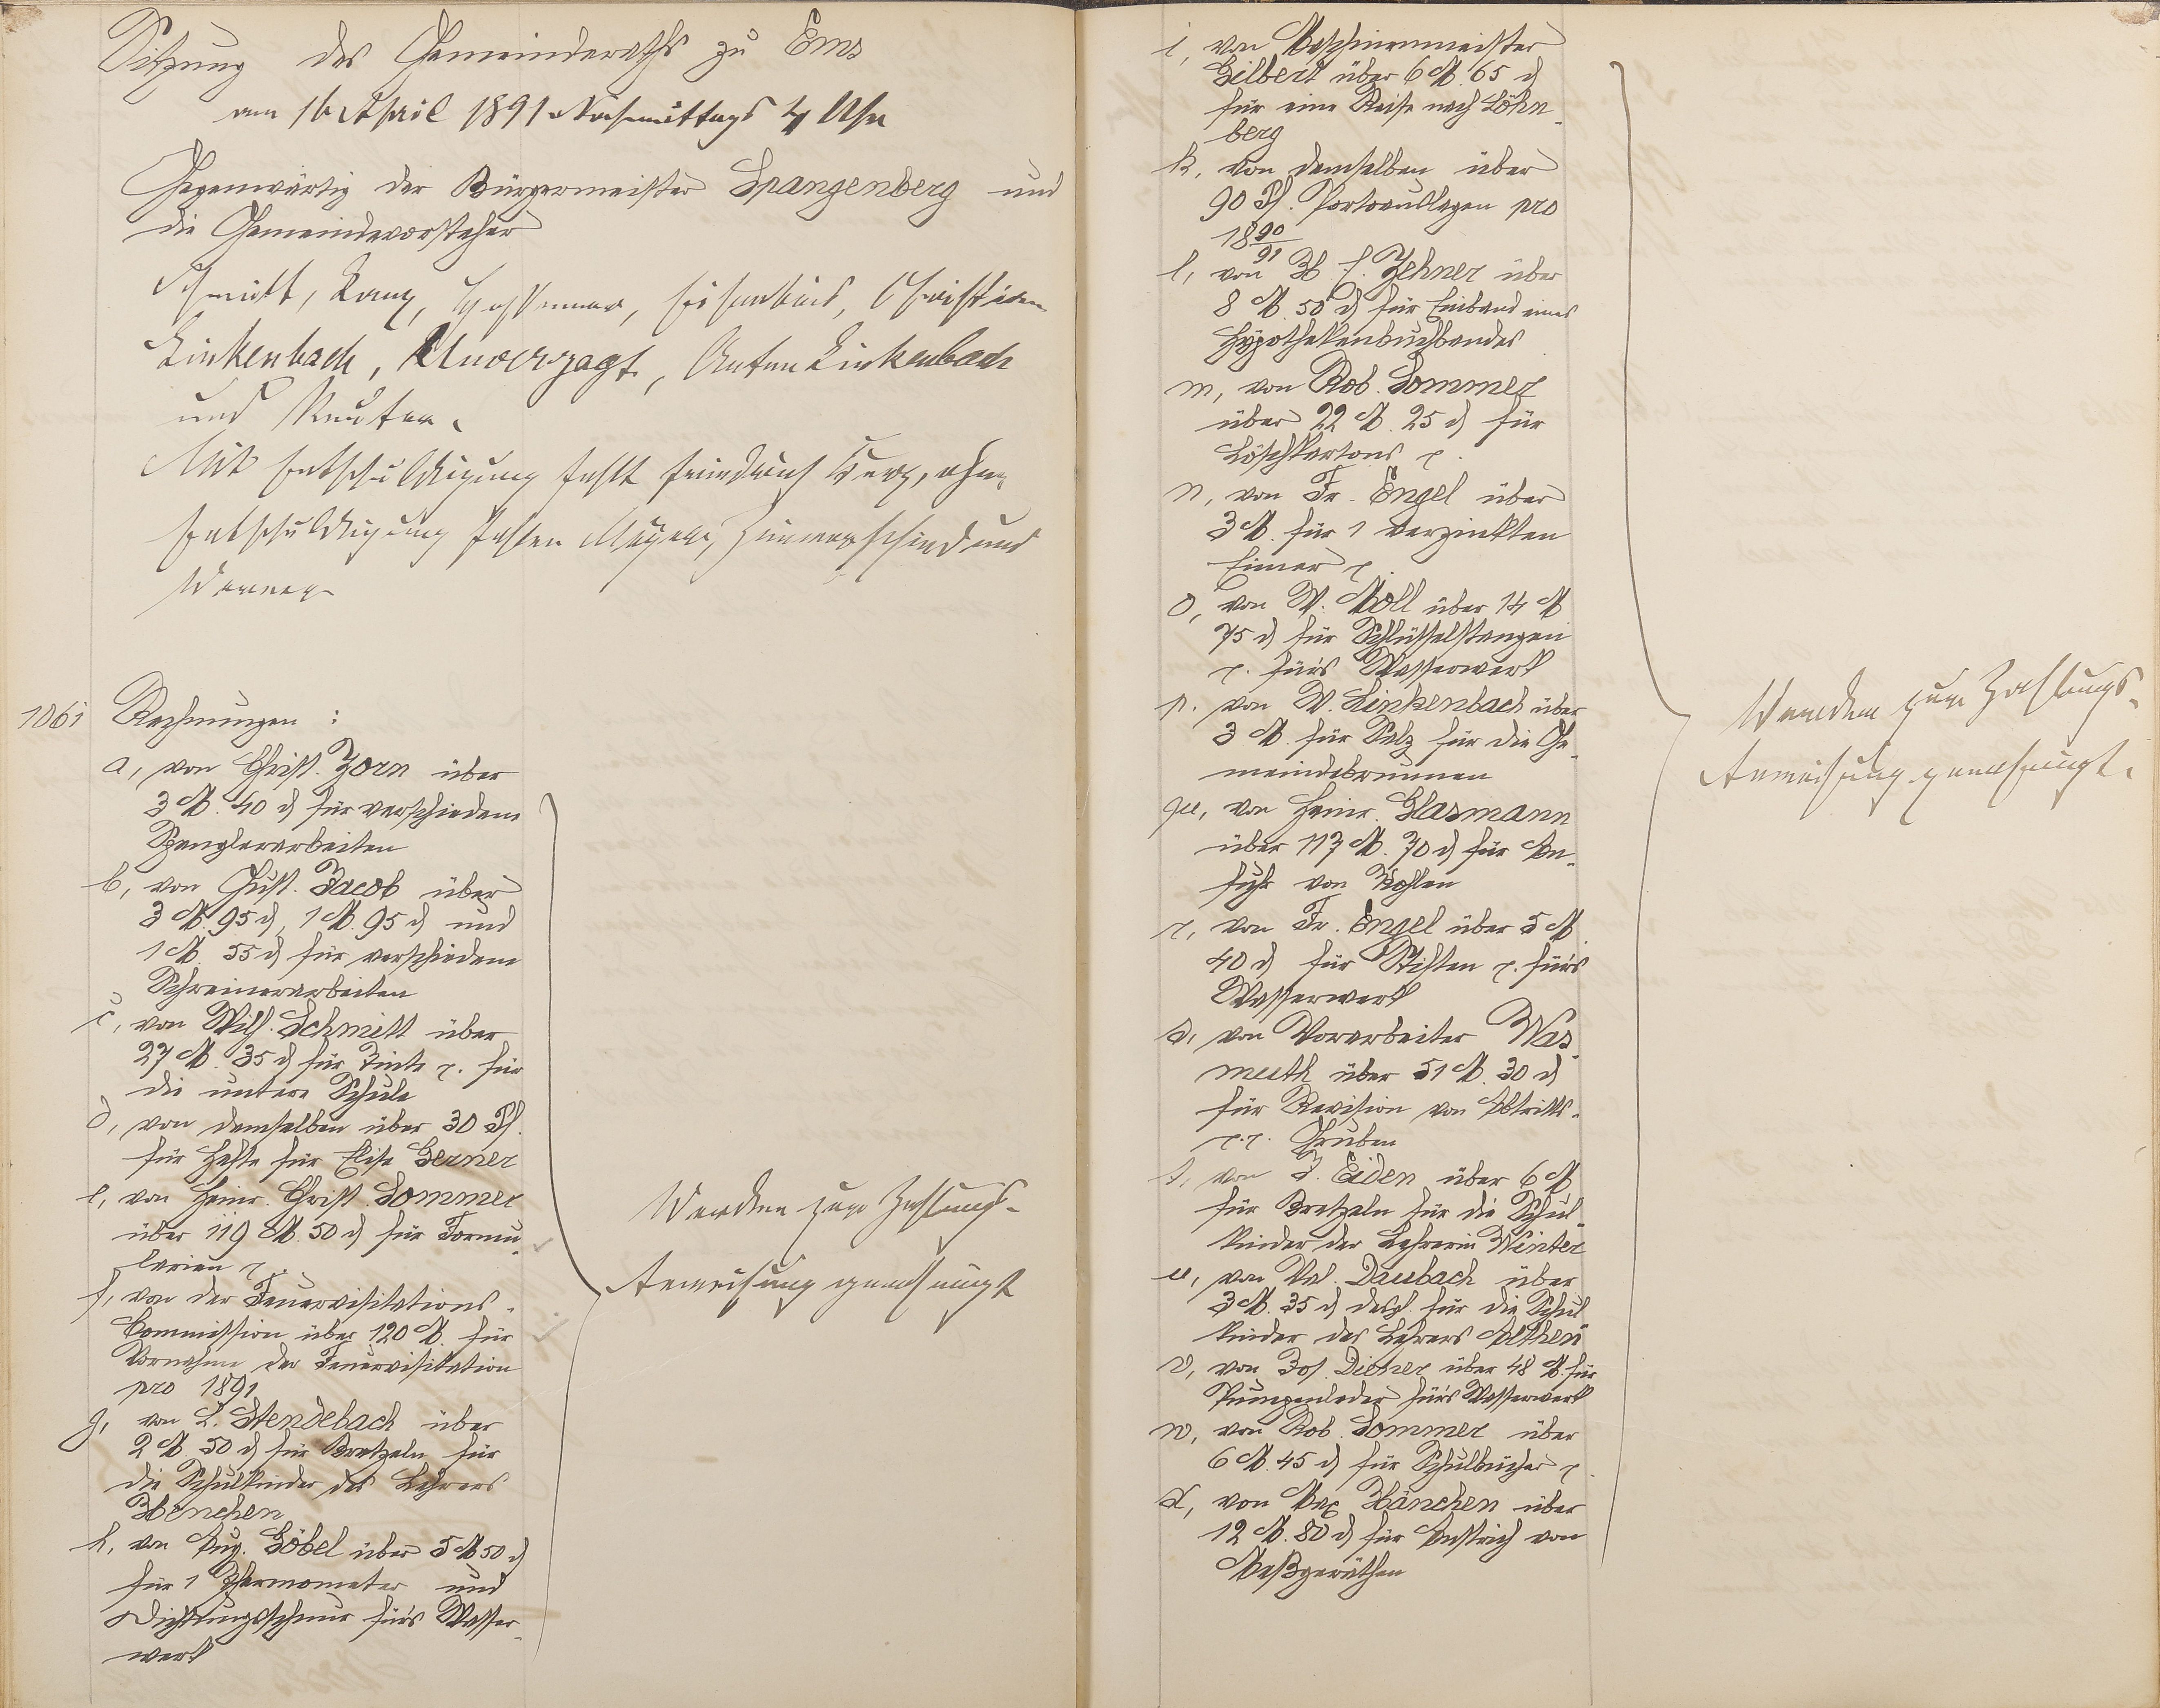 Sitzung des Gemeinderaths zu Ems
am 16 April 1891 Nachmittags 4 Uhr
Gegenwärtig der Bürgermeister Spangenberg und
die Gemeindevorsteher
Schmitt, Kauz, Christian
Linkenbach, Unverzagt, Anton Linkenbach
und Reuter.
Mit Entschuldigung fehlt Friedrich Berg, ohne
Entschuldigung fehlen Mayer, Zimmerschied und
Werner
1061 Rechnungen:
a, von Christ. Zorn über
3 M. 40 d für verschiedene
Spenglerarbeiten
b, von Gust. Jacob über
3 M. 95 d, 1 M. 95 d und
1 M. 55 d für verschiedene
Schreinerarbeiten
c, von Wilh. Schmitt über
27 M. 35 d für Tinte r. für
die untere Schule
d, von demselben über 30 Pf.
für Hefte für Elise Gerner
e, von Heinr. Christ. Sommer
über 119 M. 50 d für Formu-
larien r.
f, von der Feuervisitations-
Commission über 120 M. für
Vornahme der Feuervisitation
pro 1891
g, von L. Stendebach über
2 M. 50 d für Bretzeln für
die Schulkinder des Lehrers
Henchen
h, von Aug. Göbel über 5 M 50 d
für 1 Thermometer und
Dichtungsschnur für's Wasser-
werk
Werden zur Zahlungs-
Anweisung genehmigt
i, von Maschinenmeister
Gilbert über 6 M. 65 d
für eine Reise nach Löhn-
berg
k, von demselben über
90 Pf. Portoauslagen pro
1890/91
l, von H. C. Zehner über
8 M. 50 d für Einband eines
Hypothekenbuchbandes
m, von Rob. Sommer
über 22 M. 25 d für
Löschkartons r.
n, von Fr. Engel über
3 M. für 1 verzinkten
Eimer r.
o, von W. Moll über 14 M
75 d für Schlüsselstangen
r. für's Wasserwerk
p. von W. Linkenbach über
3 M. für Salz für die Ge-
meindebrunnen
qu, von Heinr. Glasmann
über 117 M. 70 d für An-
fuhr von Kohlen
r, von Fr. Engel über 5 M.
40 d für Stiften r. für's
Wasserwerk
s, von Vorarbeiter Was-
muth über 51 M. 30 d
für Revision von Abtritts-
r.r. Gruben
t, von J. Eiden über 6 M
für Bretzeln für die Schul-
kinder der Lehrerin Winter
u, von Val. Daubach über
3 M. 35 d desgl. für die Schul
kinder des Lehrers Althen
v, von Jos. Diener über 48 M. für
Pumpenleder für's Wasserwerk
w, von Rob. Sommer über
6 M. 45 d für Schulbücher r.
x, von Max Hänchen über
12 M. 80 d für Anstrich von
Meßgeräthen
Werden zur Zahlungs-
Anweisung genehmigt.